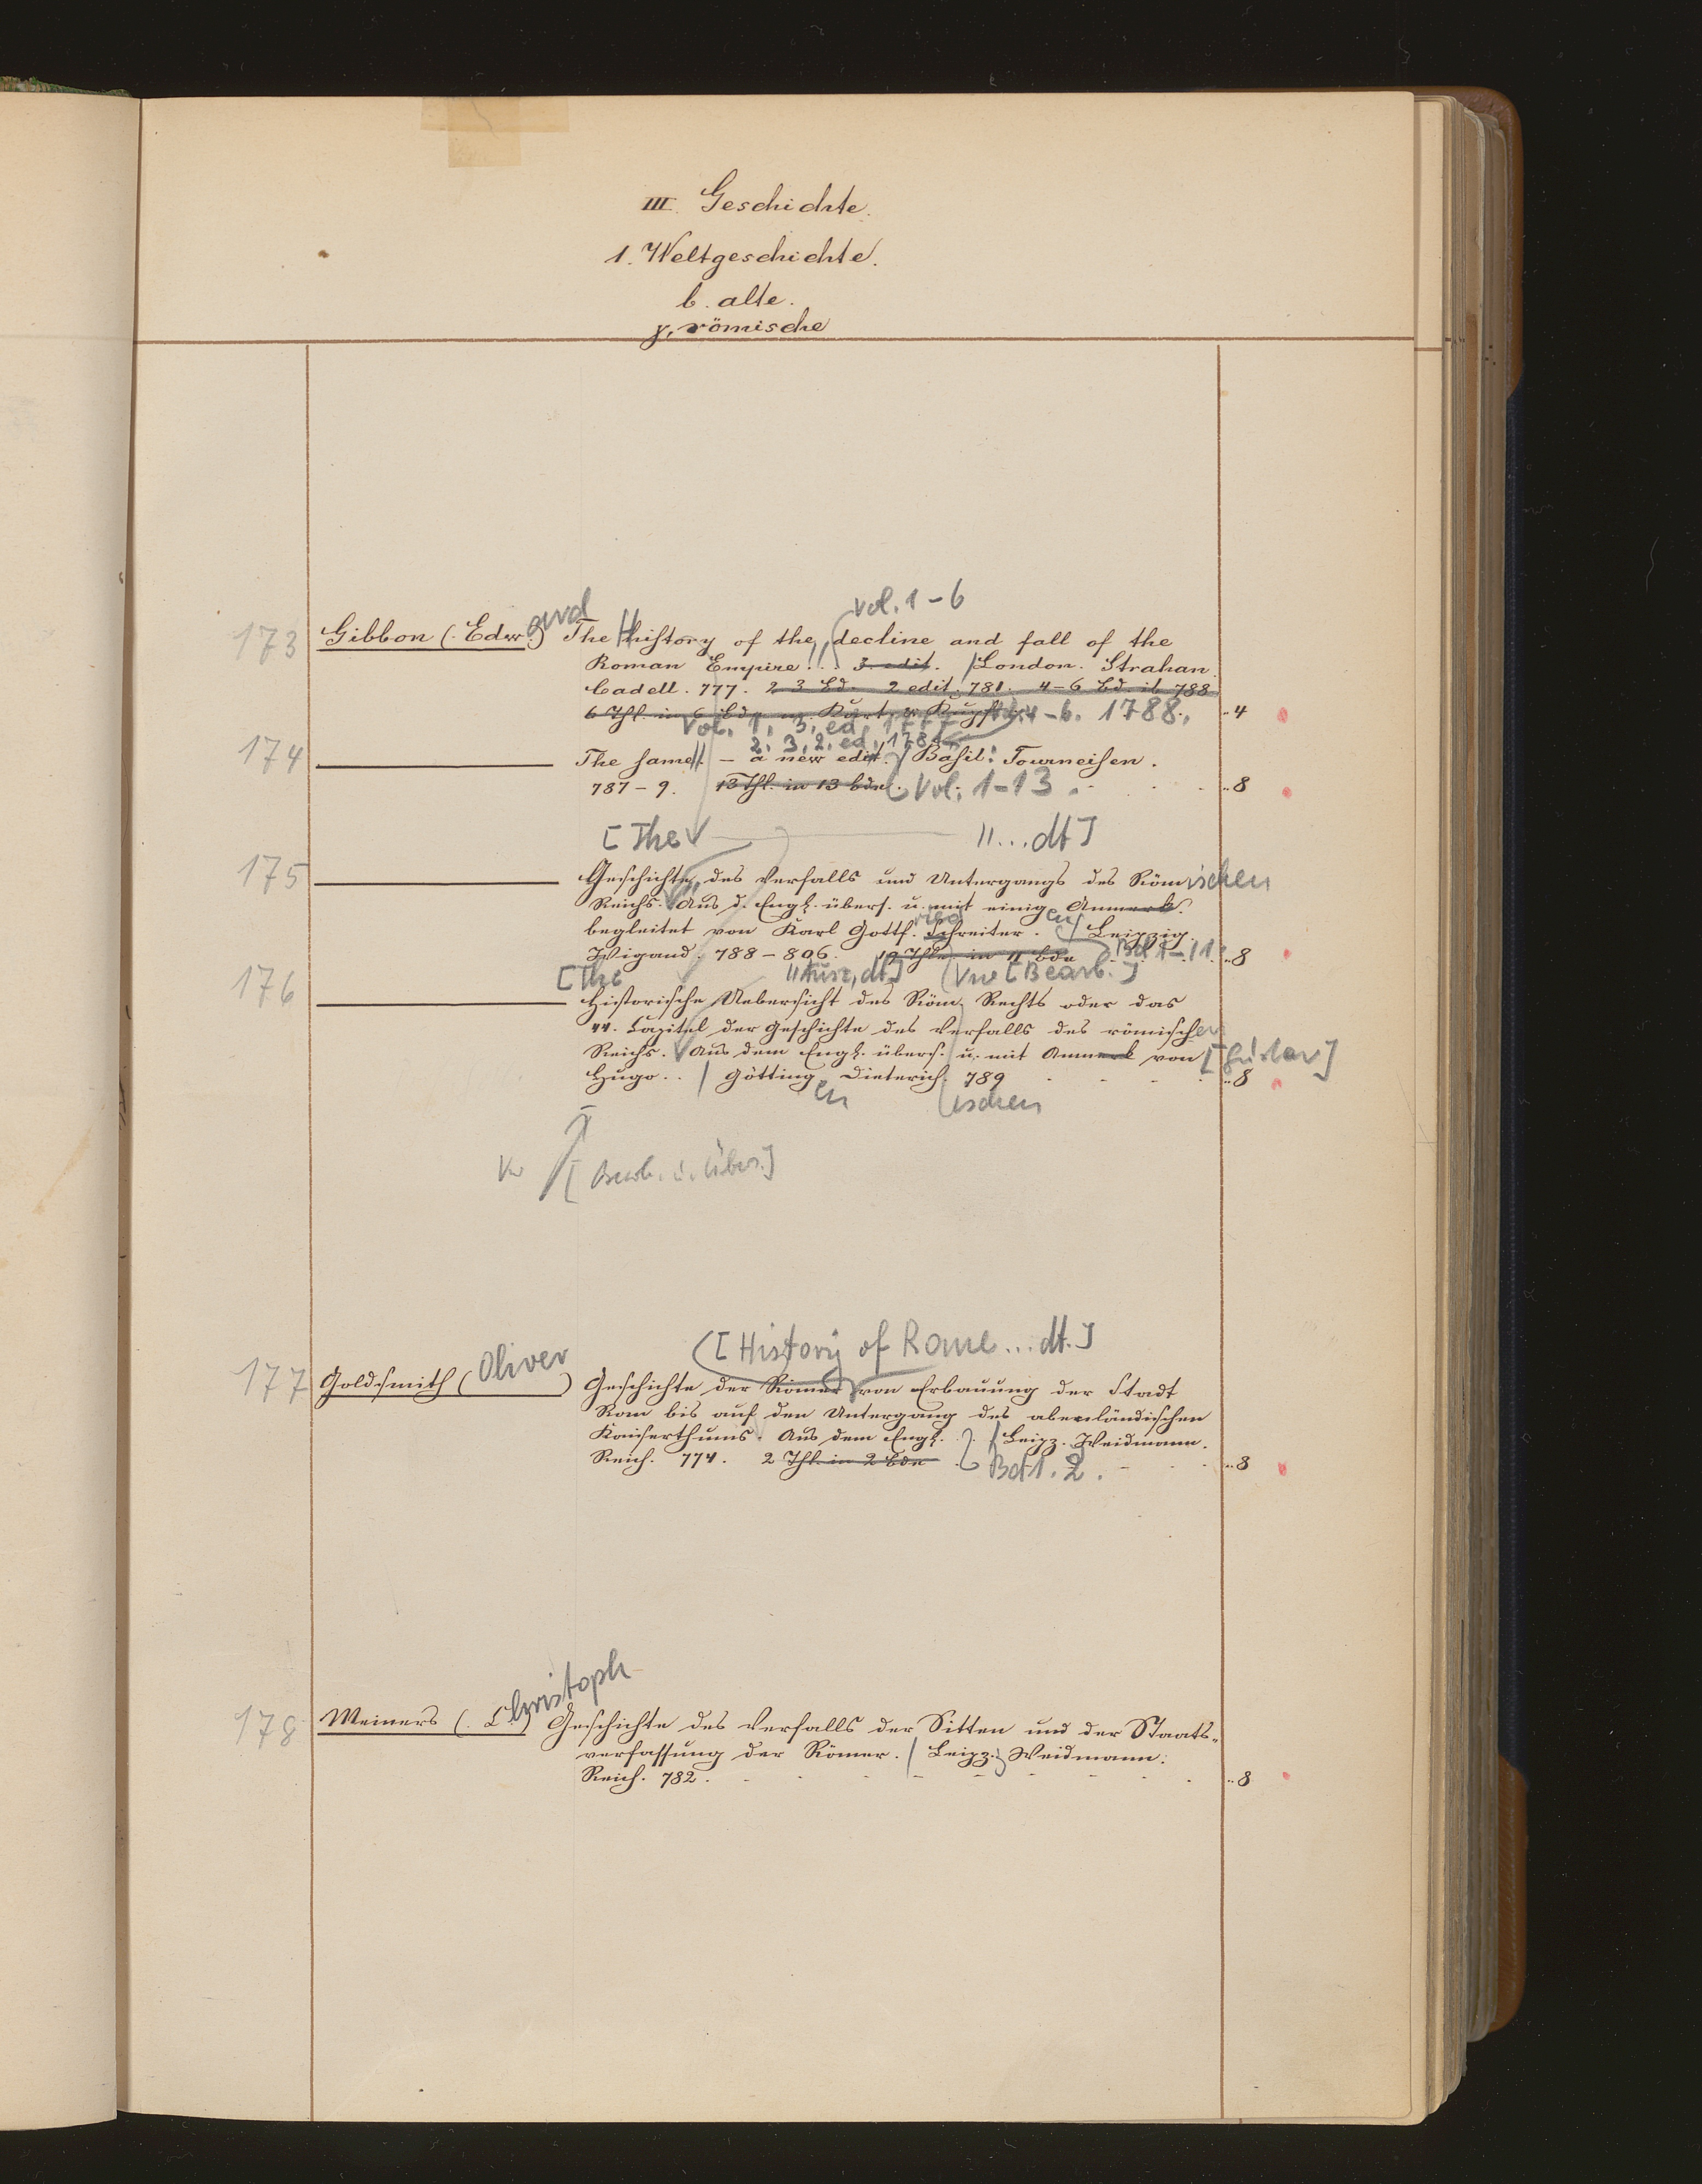 III. Geschichte.
1. Weltgeschichte.
b. alte.
γ, römische
vol. 1-6
173 Gibbon (. Edw.) ard The history of the decline and fall of the
Roman Empire... 3. edit. / London. Strahan.
Cadell. 777. 2 3 Bd. 2 edit. 781. 4-6 Bd. ib 788
6 Thl. in 6 Bdn m. Kart. u. Kupf. 4-6. 1788. ..4
Vol. 1, 3. ed. 1777
2. 3, 2. ed. 1781
174 The same - a new edit. / Basil: Tourneisen.
787-9. 13 Thl. in 13 Bdn. Vol. 1-13. ..8
[The ... dt]
175 Geschichte des Verfalls und Untergangs des Römischen
Reichs. Aus d. Engl. übers. u. mit einig. en Anmerk.
begleitet von Karl Gottf. ried Schreiter. / Leipzig.
Wigand. 788-806. 19 Thle. in 11 Bdn Bd 1-11. ..8
[The Ausz, dt] (Vw [Bearb.]
176 Historische Uebersicht des Röm. Rechts oder das
44. Capitel der Geschichte des Verfalls des römischen
Reichs. Aus dem Engl. übers. u. mit Anmerk von [Gustav]
Hugo.. / Götting. en Dieterich. 789 ..8
ischen
Vw [Bearb. u. Übers.]
([History of Rome ... dt.]
177 Goldsmith (Oliver) Geschichte der Römer von Erbauung der Stadt
Rom bis auf den Untergang des abendländischen
Kaiserthums. Aus dem Engl. / Leipz. Weidmann.
Reich. 774. 2 Thl. in 2 Bdn Bd 1. 2. ..8
178 Meiners (. C.) hristoph Geschichte des Verfalls der Sitten und der Staats-
verfassung der Römer. / Leipz. Weidmann.
Reich. 782. ..8